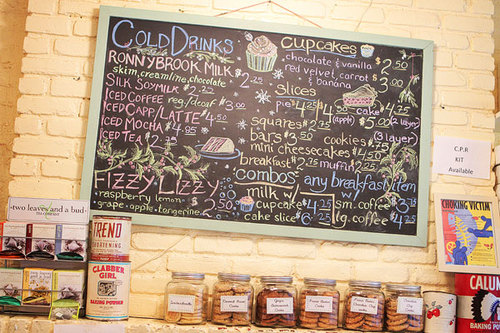 COLD DRINKS
RONNYBROOK MILK $2.25
skim, creamline, chocolate
SILK SOYMILK $2.25
ICED COFFEE reg/decaf $3.00
ICED CAPP/LATTE $4.50
ICED MOCHA $4.95
ICED TEA $2.75
FIZZY LIZZY
raspberry lemon
grape·apple·tangerine $2.50
cupcakes
chocolate & vanilla $2.75
red velvet, carrot $3.00
& banana
slices
pie $4.75 cake $4.75
(apple) (2 layer)
$5.00 (3 layer)
squares $2.75
bars $3.50 cookies
mini cheesecakes $4.50
breakfast $2.75 muffin
combos
milk w/ any breakfast item
cupcake $4.25 sm. coffee $3.75
cake slice $6.25 lg. coffee $4.25
C.P.R
KIT
Available
CHOKING VICTIM
two leaves and a bud
TREND
CLABBER
GIRL
BAKING POWDER
CALUM
BAKING PO